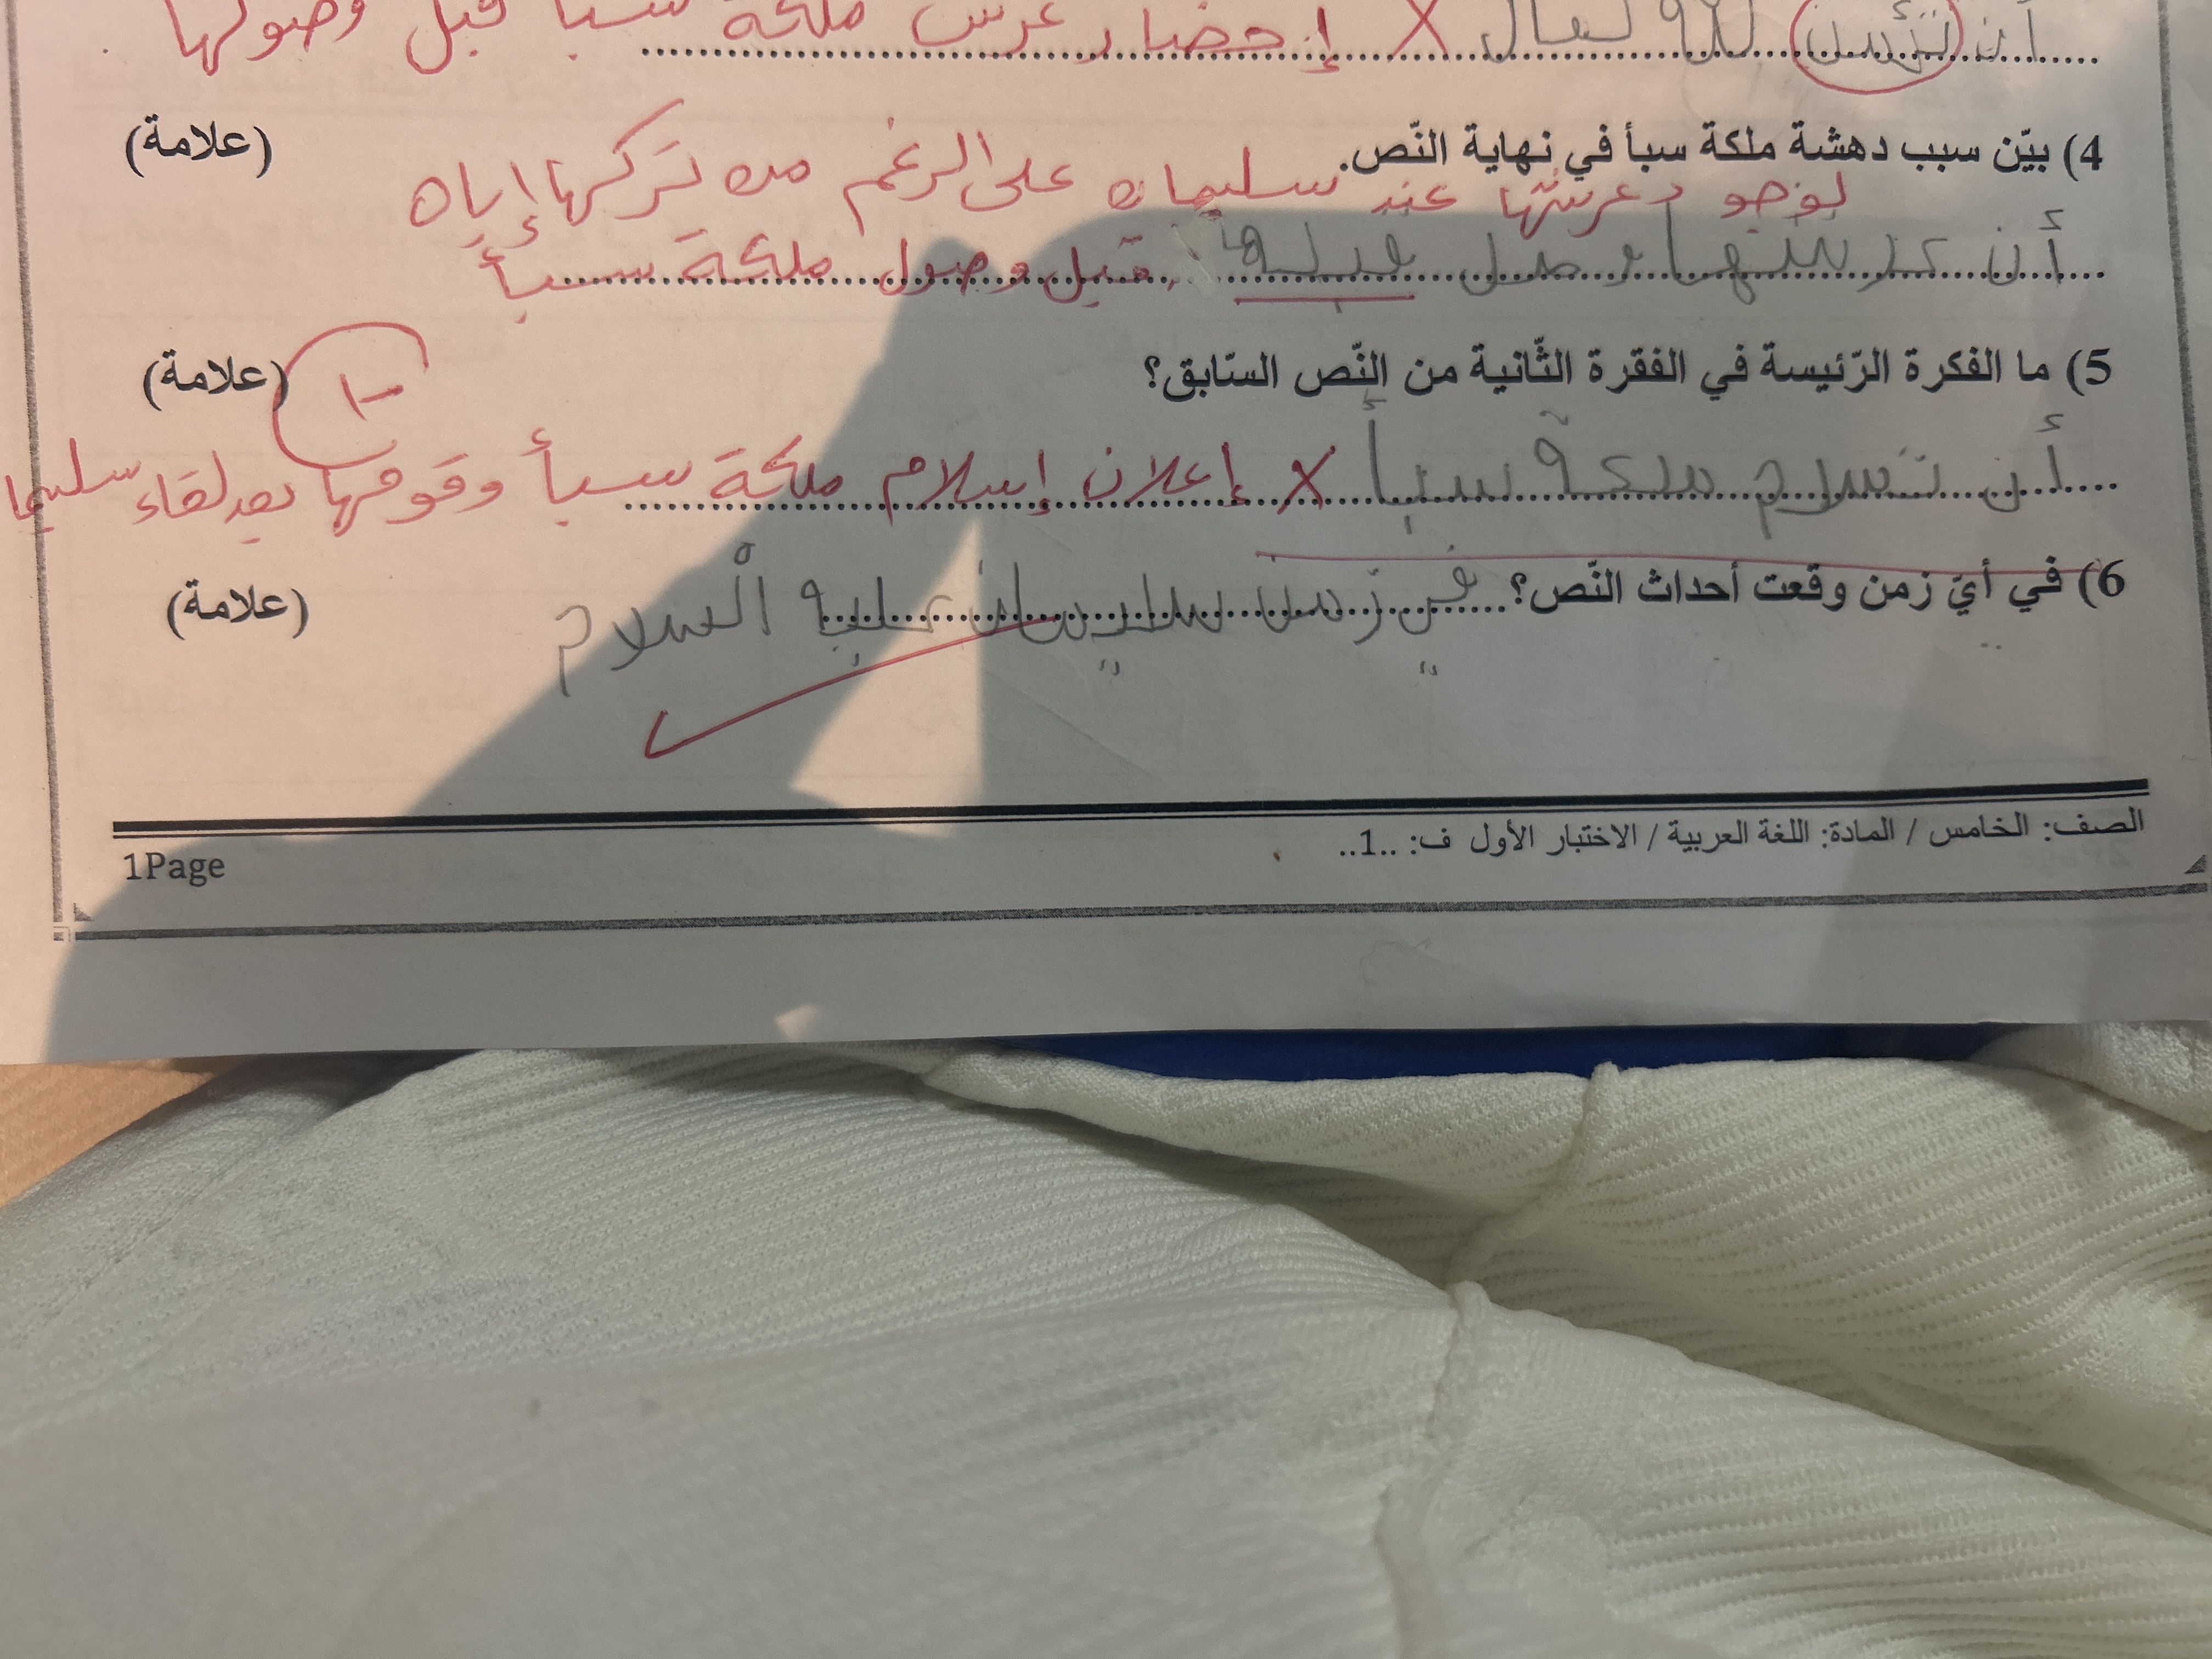 أن تؤمن لله تعال X إحضار عرش ملكة سبأ قبل وصولها
4) بيّن سبب دهشة ملكة سبأ في نهاية النّص. (علامة)
لوجود عرشها عند سليمان على الرغم من تركها إياه
أن عرشها وصل قبلها قبل وصول ملكة سبأ
5) ما الفكرة الرّئيسة في الفقرة الثّانية من النّص السّابق؟ (علامة)
-1
أن تسلام ملكة سبأ X إعلان إسلام ملكة سبأ وقومها بعد لقاء سليما
6) في أيّ زمن وقعت أحداث النّص؟ في زمن سليمان عليه السلام (علامة)
الصف: الخامس / المادة: اللغة العربية / الاختبار الأول ف: ..1..
1Page